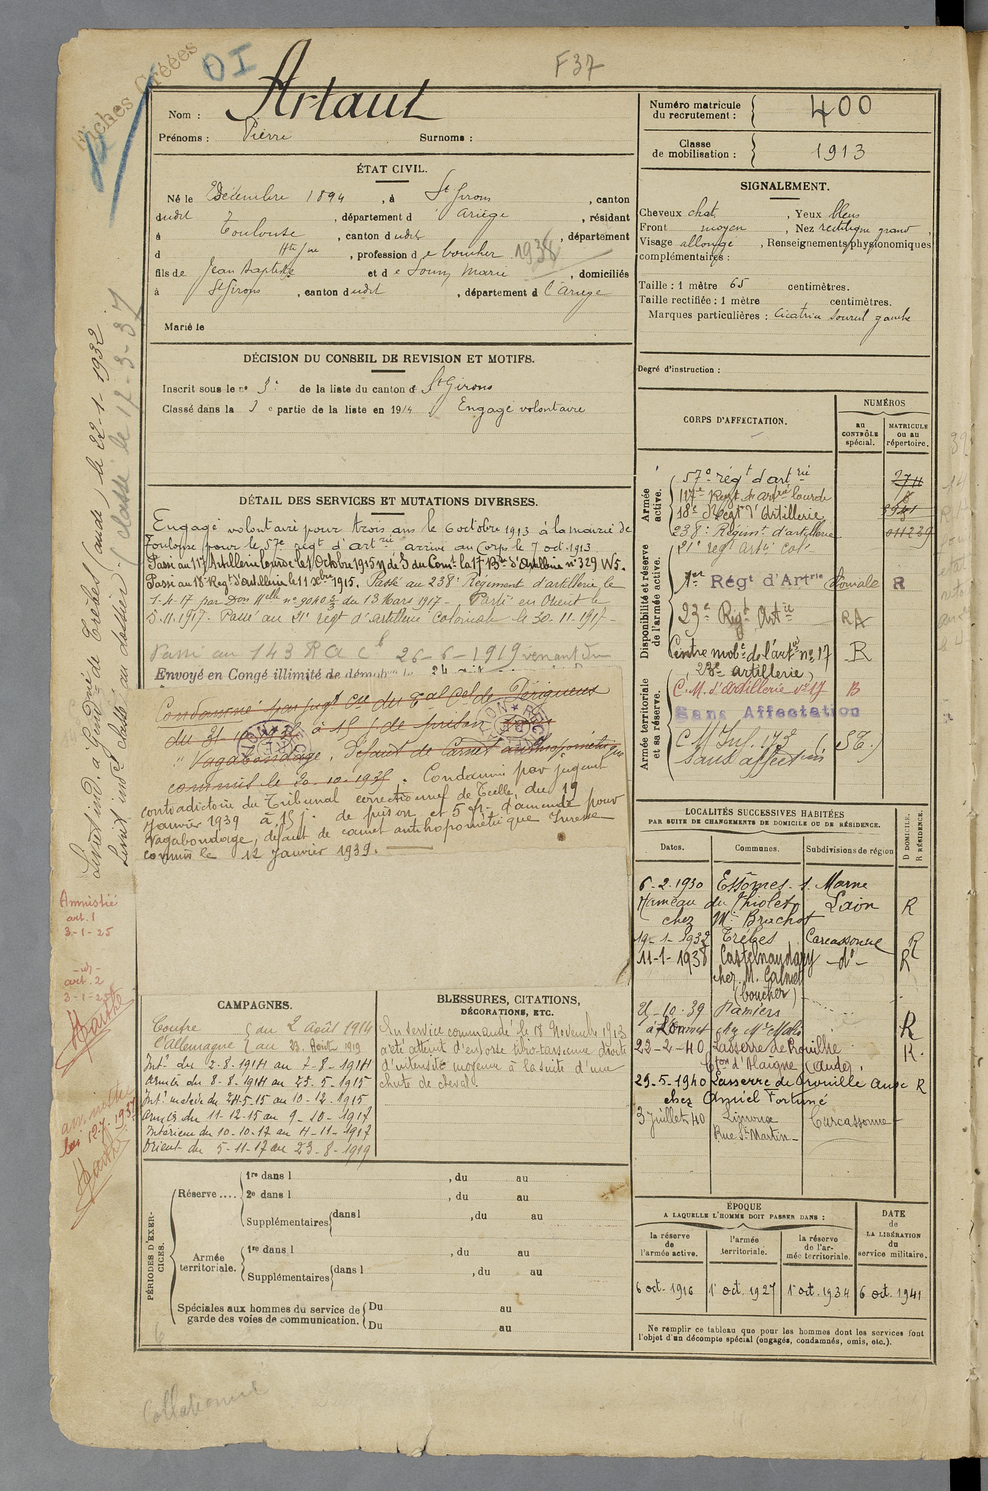 Fiches Créées
OI
F 37
Nom : Artaut
Prénoms : Pierre Surnoms :
Numéro matricule
du recrutement : 400
Classe
de mobilisation : 1913
ÉTAT CIVIL.
Né le Décembre 1894, à St Girons, canton
dudit, département d'Ariège, résidant
à Toulouse, canton dudit, département
d Hte Gne, profession de boucher 1938
fils de Jean Baptiste et de Soum Marie, domiciliés
à St Girons, canton dudit, département d l'Ariège
Marié le
SIGNALEMENT.
Cheveux chat., Yeux bleus
Front moyen, Nez rectiligne grand,
Visage allongé, Renseignements physionomiques
complémentaires :
Taille : 1 mètre 65 centimètres.
Taille rectifiée : 1 mètre centimètres.
Marques particulières : Cicatrice sourcil gauche
Degré d'instruction :
DÉCISION DU CONSEIL DE REVISION ET MOTIFS.
Inscrit sous le no de la liste du canton de St Girons
Classé dans la 3e partie de la liste en 1914 Engagé volontaire
DÉTAIL DES SERVICES ET MUTATIONS DIVERSES.
Engagé volontaire pour trois ans le 6 octobre 1913 à la mairie de
Toulouse pour le 57e régt d'artrie arrivé au Corps le 7 oct. 1913
Passé au 117e Artillerie Lourde le 1 Octobre 1915 n° 329 W5.
Passé au 18e Regt d'Artillerie le 11 Xbre 1915. Passé au 238e Régiment d'artillerie le
1-4-17 par Don Melle n° 9040 3/3 du 13 Mars 1917 - Parti en Orient le
5.11.1917. Passé au 21e régt d'artillerie coloniale le 30-11-1917-
Passé au 143 R a c le 26-6-1919 venant du
Envoyé en Congé illimité de démob
Condamné par jugt Cre du Tal Cel de Périgueux
du 31 à 15 j de prison
"Vagabondage, Défaut de Carnet anthropométrique
commis le 30-10-1935. Condamné par jugement
contradictoire du Tribunal correctionnel de Tulle, du 19
Janvier 1939 à 15 j. de prison et 5 fr. d'amende pour
Vagabondage, défaut de carnet anthropométrique
commis le 12 Janvier 1939.
Livret ind. à Gendrie de Trèbes (Aude) le 22-1-1932
Livret indl classé au dossier. (classé le 17-3-37
Amnistié
art. 1
3-1-25
art. 2
3-1-25
Barthe
amnistié
loi 12-7-1937
Barthe
CORPS D'AFFECTATION.
NUMÉROS
au
CONTRÔLE
spécial.
MATRICULE
ou au
répertoire.
Armée
active.
57e régt d'artrie 2711
117e Regt d'artrie lourde
18e Regt d'Artillerie
238e Régimt d'artillerie
Disponibilité et réserve
de l'armée active.
21e régt artie cole
1er Régt d'Artrie Coloniale R
23e Regt Artie RA
Centre mobe de l'arte n° 17 R
(23e artillerie)
Armée territoriale
et sa réserve.
C.M. d'Artillerie n° 17 R
Sans Affectation
C M Inf. 173 (ST.)
Sans affection
LOCALITÉS SUCCESSIVES HABITÉES
PAR SUITE DE CHANGEMENTS DE DOMICILE OU DE RÉSIDENCE.
D DOMICILE.
R RÉSIDENCE.
Dates. Communes. Subdivisions de région
6-2-1930 Essômes-s. Marne
Hameau du Thiolet Laon R
chez Mr Brachot
19-1-1932 Trèbes Carcassonne R
11-1-1938 Castelnaudary -do- R
chez M.
(boucher)
21-10-39 Pamiers R
22-2-40 Lasserre de Prouilhe R.
Cton d'Alaigne (Aude).
29-5-1940 Lasserre de Prouille Aude R
chez Amiel Fortuné
3 juillet 40 Limoux Carcassonne
Rue St Martin
CAMPAGNES.
Contre du 2 Août 1914
l'Allemagne au 23 Août 1919
Intr du 2-8-1914 au 7-8-1914
Armées du 8-8-1914 au 23-5-1915
Intr malade du 24-5-15 au 10-12-1915
Armées du 11-12-15 au 9-10-1917
Intérieur du 10-10-17 au 4-11-1917
Orient du 5-11-17 au 23-8-1919
BLESSURES, CITATIONS,
DÉCORATIONS, ETC.
En service commandé le 18 Novembre 1913
a été atteint d'entorse tibio-tarsienne droite
d'intensité moyenne à la suite d'une
chute de cheval.
PÉRIODES D'EXERCICES.
Réserve....
1re dans l , du au
2e dans l , du au
Supplémentaires dans l , du au
Armée
territoriale.
1re dans l , du au
Supplémentaires dans l , du au
Spéciales aux hommes du service de
garde des voies de communication.
Du au
Du au
ÉPOQUE
A LAQUELLE L'HOMME DOIT PASSER DANS :
DATE
de
LA LIBÉRATION
du
service militaire.
la réserve
de
l'armée active.
l'armée
territoriale.
la réserve
de l'ar-
mée territoriale.
6 oct. 1916 1r oct. 1927 1r oct. 1934 6 oct. 1941
Ne remplir ce tableau que pour les hommes dont les services font
l'objet d'un décompte spécial (engagés, condamnés, omis, etc.).
Collationné